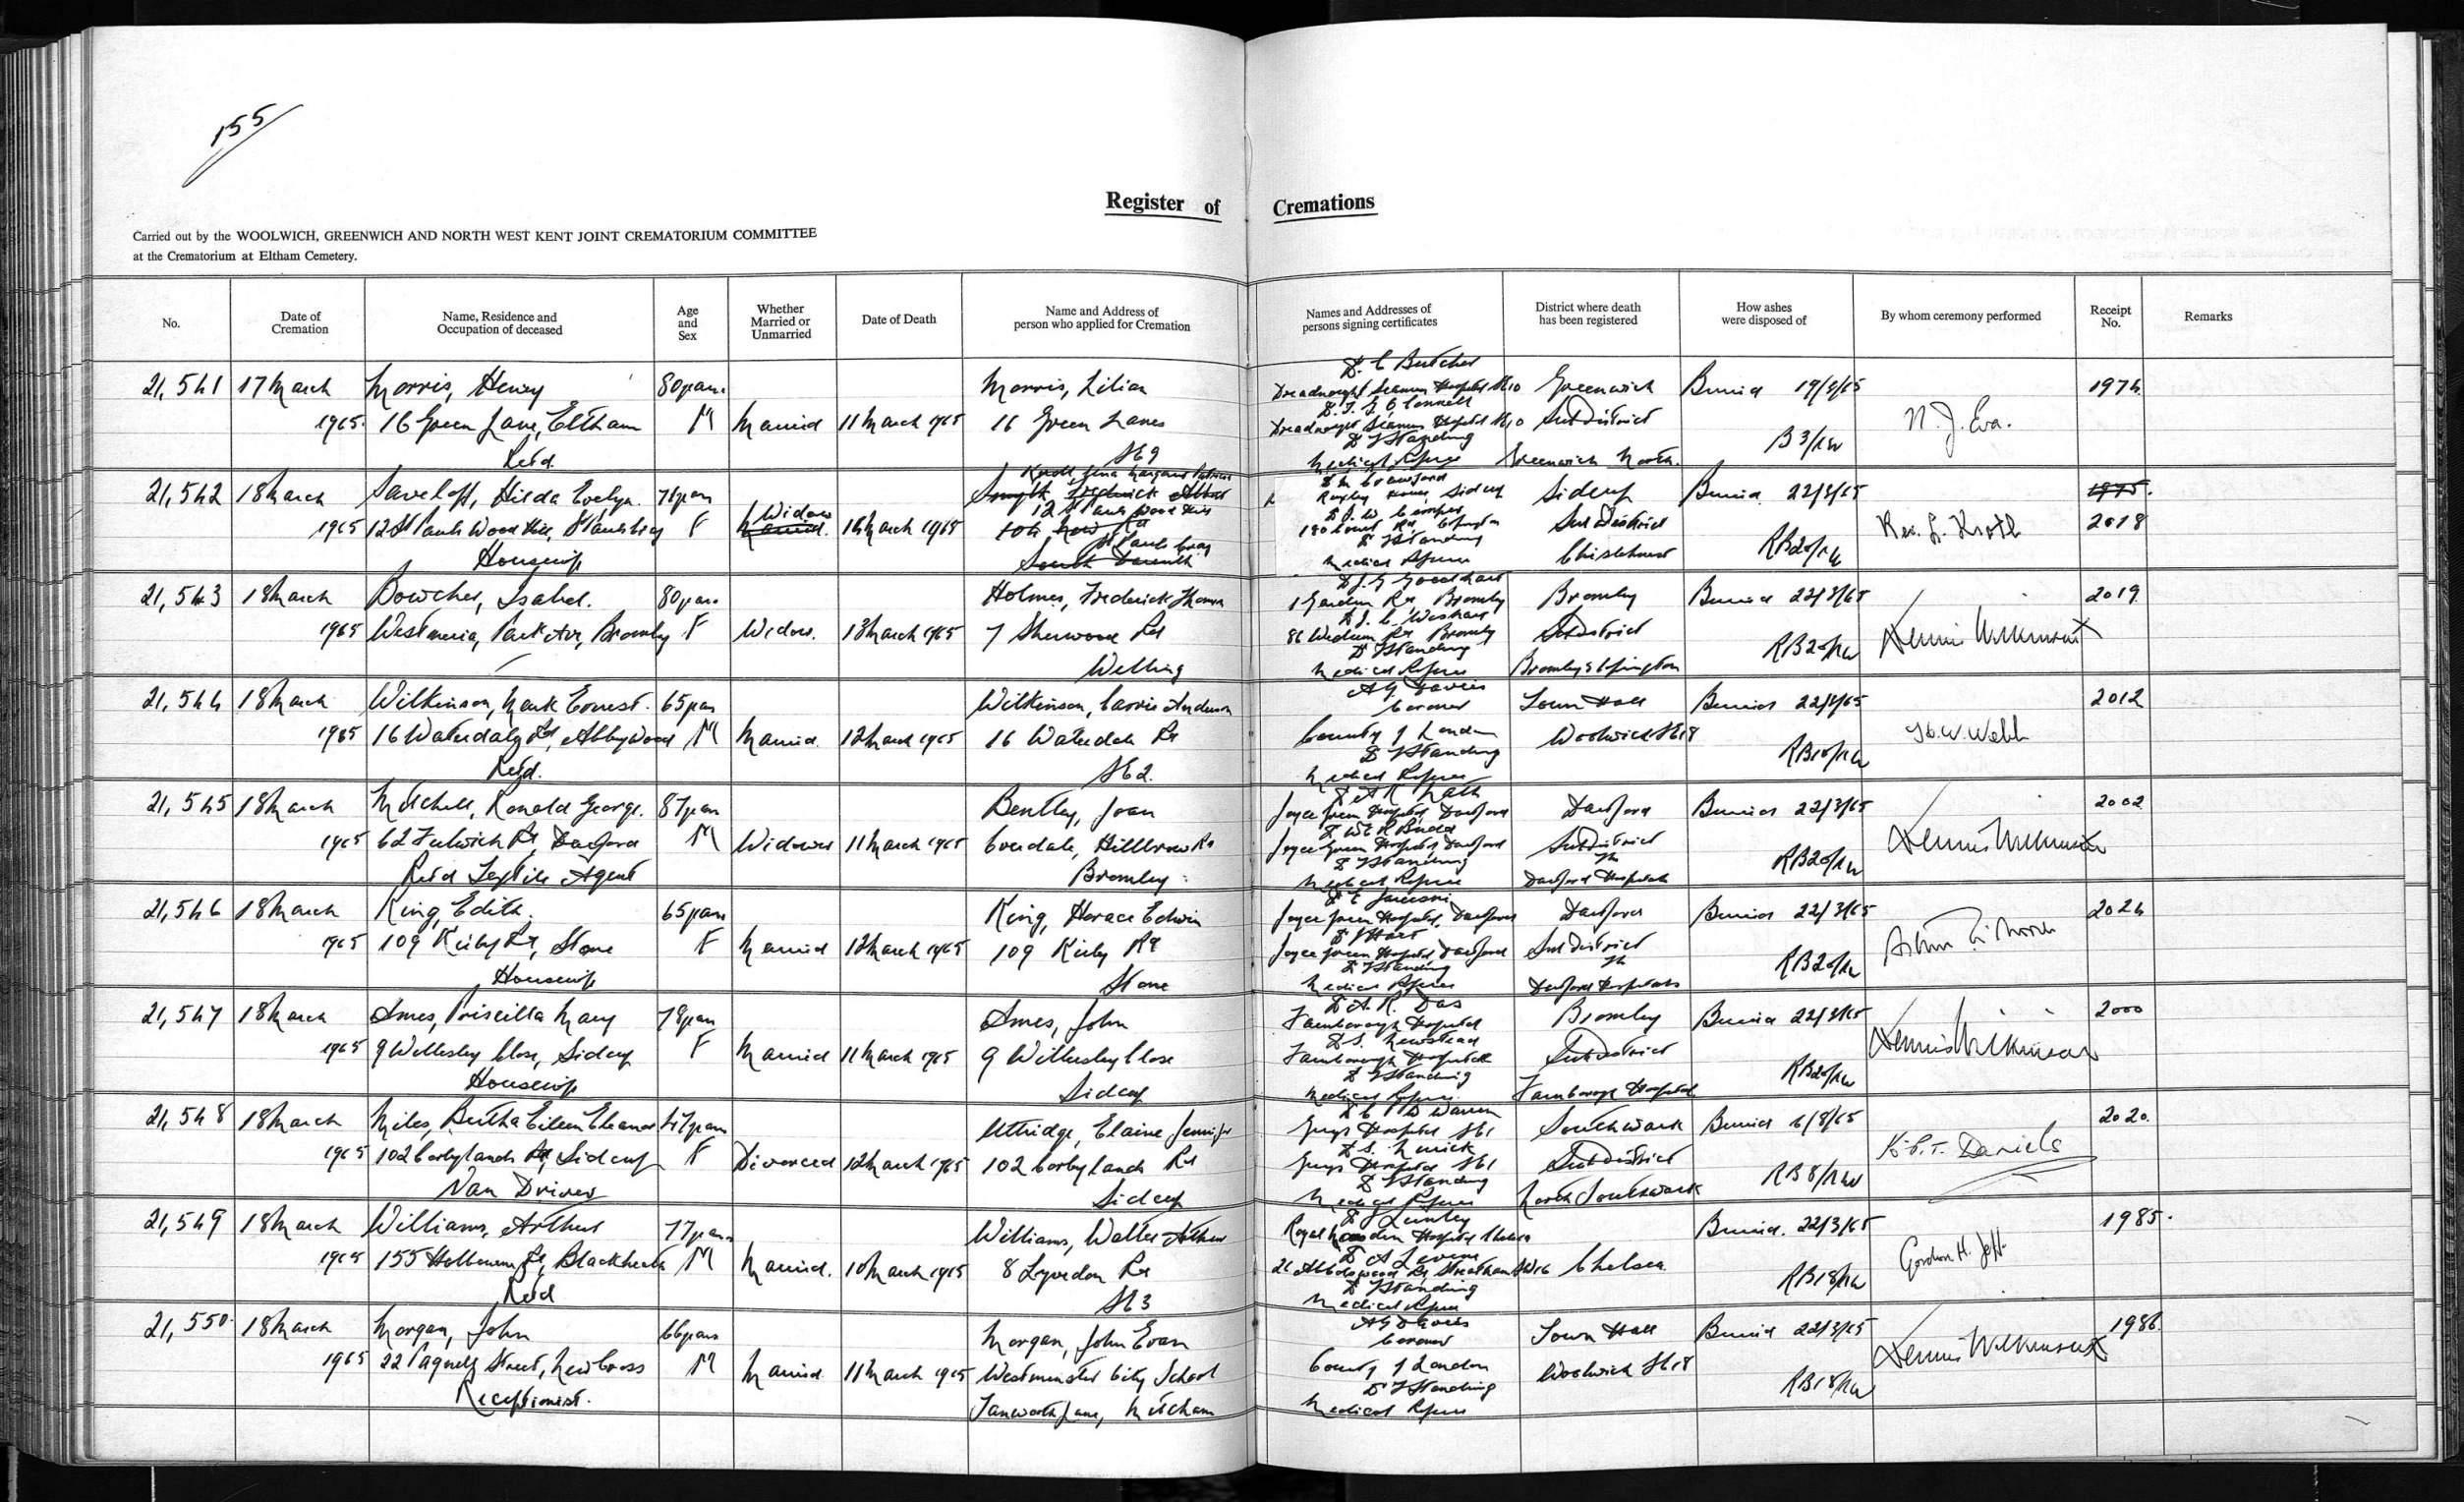 155
Register of Cremations
Carried out by the WOOLWICH, GREENWICH AND NORTH WEST KENT JOINT CREMATORIUM COMMITTEE
at the Crematorium at Eltham Cemetery.
No.
Date of
Cremation
Name, Residence and
Occupation of deceased
Age
and
Sex
Whether
Married or
Unmarried
Date of Death
Name and Address of
person who applied for Cremation
Names and Addresses of
persons signing certificates
District where death
has been registered
How ashes
were disposed of
By whom ceremony performed
Receipt
No.
Remarks
Dr. C Butcher
21,541 17 March Morris, Henry 80 years Morris, Lilian Dreadnought Seamens Hospital SE10 Greenwich Buried 19/3/65 1974
1965 16 Green Lane, Eltham M Married 11 March 1965 16 Green Lanes Dreadnought Seamens Hospital SE10 Sub District N. J. Eva.
Dr Y Standing B3/RW
Retd. SE9 Medical Referee Greenwich North.
21,542 18 March Saveloff, Hilda Evelyn. Smyth Frederick Albert Sidcup Buried 22/3/65 1975.
1965 12 St Pauls Wood Hill, St Pauls Cray F Widow Married. 106 New Rd Sub District Rev. L. Kroll 2018
12 St Pauls Wood Hill
St Pauls Cray Dr Y Standing RB20/RW
Housewife South Darenth Medical Referee Chislehurst
Dr J. G Goodhart
21,543 18 March Bowcher, Isabel. 80 years Holmes, Frederick Thomas 1 Garden Rd, Bromley Bromley Buried 22/3/65 2019
1965 Park Ave, Bromley F Widow. 13 March 1965 7 Sherwood Rd Bromley Sub District Dennis Wilkinson
Dr Y Standing RB20/RW
Welling Medical Referee Bromley & Orpington
21,544 18 March Wilkinson, Mark Ernest. 65 years Wilkinson, Carrie A G Davies Coroner Town Hall Buried 22/3/65 2012
1965 16 Waterdale Rd, Abbey Wood M Married. 12 March 1965 16 Waterdale Rd County of London Woolwich SE18 Webb
Dr Y Standing RB18/RW
Retd. SE2. Medical Referee
21,545 18 March Mitchell, Ronald George. 87 years Bentley, Joan Joyce Green Hospital, Dartford Dartford Buried 22/3/65 2002
1965 62 Fulwich Rd, Dartford M Widower 11 March 1965 Hillbrow Rd Joyce Green Hospital Dartford Sub District Dennis Wilkinson
Dr Y Standing RB20/RW
Retd Textile Agent Bromley Medical Referee Dartford Hospitals
21,546 18 March King, Edith. 65 years King, Horace Edwin Joyce Green Hospital, Dartford Dartford Buried 22/3/65 2024
1965 109 Kirby Rd, Stone F Married 12 March 1965 109 Kirby Rd Joyce Green Hospital, Dartford Sub District
Dr Y Standing RB20/RW
Housewife Stone Medical Referee Dartford Hospitals
Dr A. R. Das
21,547 18 March Ames, Priscilla Mary 78 years Ames, John Farnborough Hospital Bromley Buried 22/3/65 2000
Dr S. Newstead
1965 9 Wellesley Close, Sidcup F Married 11 March 1965 9 Wellesley Close Farnborough Hospital Sub District Dennis Wilkinson
Dr Y Standing RB20/RW
Housewife Sidcup Medical Referee Farnborough Hospital
Dr C P D Warren
21,548 18 March Miles, Bertha Eileen Eleanor 47 years Uttridge, Elaine Jennifer Guys Hospital SE1 Southwark Buried 6/8/65 2020.
1965 102 Corbylands Rd, Sidcup F Divorced 12 March 1965 102 Corbylands Rd Guys Hospital SE1 Sub District K.P.T. Daniels
Dr Y Standing RB8/RW
Van Driver Sidcup Medical Referee North Southwark
21,549 18 March Williams, Arthur 77 years Williams, Walter Arthur Royal Marsden Hospital Chelsea Buried. 22/3/65 1985.
Dr A Levene
1965 155 Holburne Rd, Blackheath M Married. 10 March 1965 8 Lyvedon Rd 26 Abbotswood Rd Streatham SW16 Chelsea Gordon H. Jeff.
Dr Y Standing RB18/RW
Retd SE3 Medical Referee
21,550. 18 March Morgan, John 66 years Morgan, John Evan A G Davies Coroner Town Hall Buried 22/3/65 1986.
1965 22 Pagnell Street, New Cross M Married 11 March 1965 Westminster City School County of London Woolwich SE18 Dennis Wilkinson
Dr Y Standing RB18/RW
Receptionist. Tamworth Lane, Mitcham Medical Referee